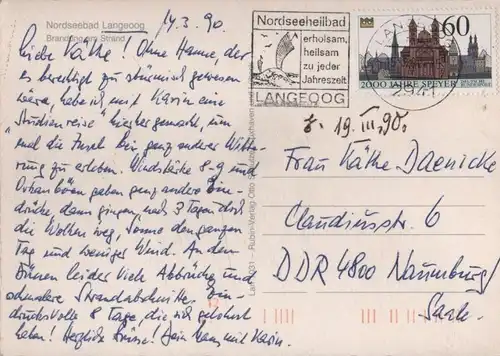 Nordseebad Langeoog
Brandung am Strand
14.3.90
Liebe Käthe! Ohne Hanne, der
es berechtigt zu stürmisch gewesen
wäre, habe ich mit Karin eine
"Studienreise" hierher gemacht, um
mal die Insel bei ganz anderer Witte-
rung zu erleben. Windstärke 8-9 und
Orkanböen gaben ganz andere Ein-
drücke, dann gingen nach 3 Tagen dort
die Wolken weg, Sonne den ganzen
Tag und weniger Wind. An den
Dünen leider viele Abbrüche und
schmalere Strandabschnitte. Ein-
drucksvolle 8 Tage, die sich gelohnt
haben! Herzliche Grüsse! Dein mit Karin.
Nordseeheilbad
erholsam,
heilsam
zu jeder
Jahreszeit
LANGEOOG
60
2000 JAHRE SPEYER
DEUTSCHE BUNDESPOST
19.III.90.
Frau Käthe Daenicke
Claudiusstr. 6
DDR 4800 Naumburg/
Saale